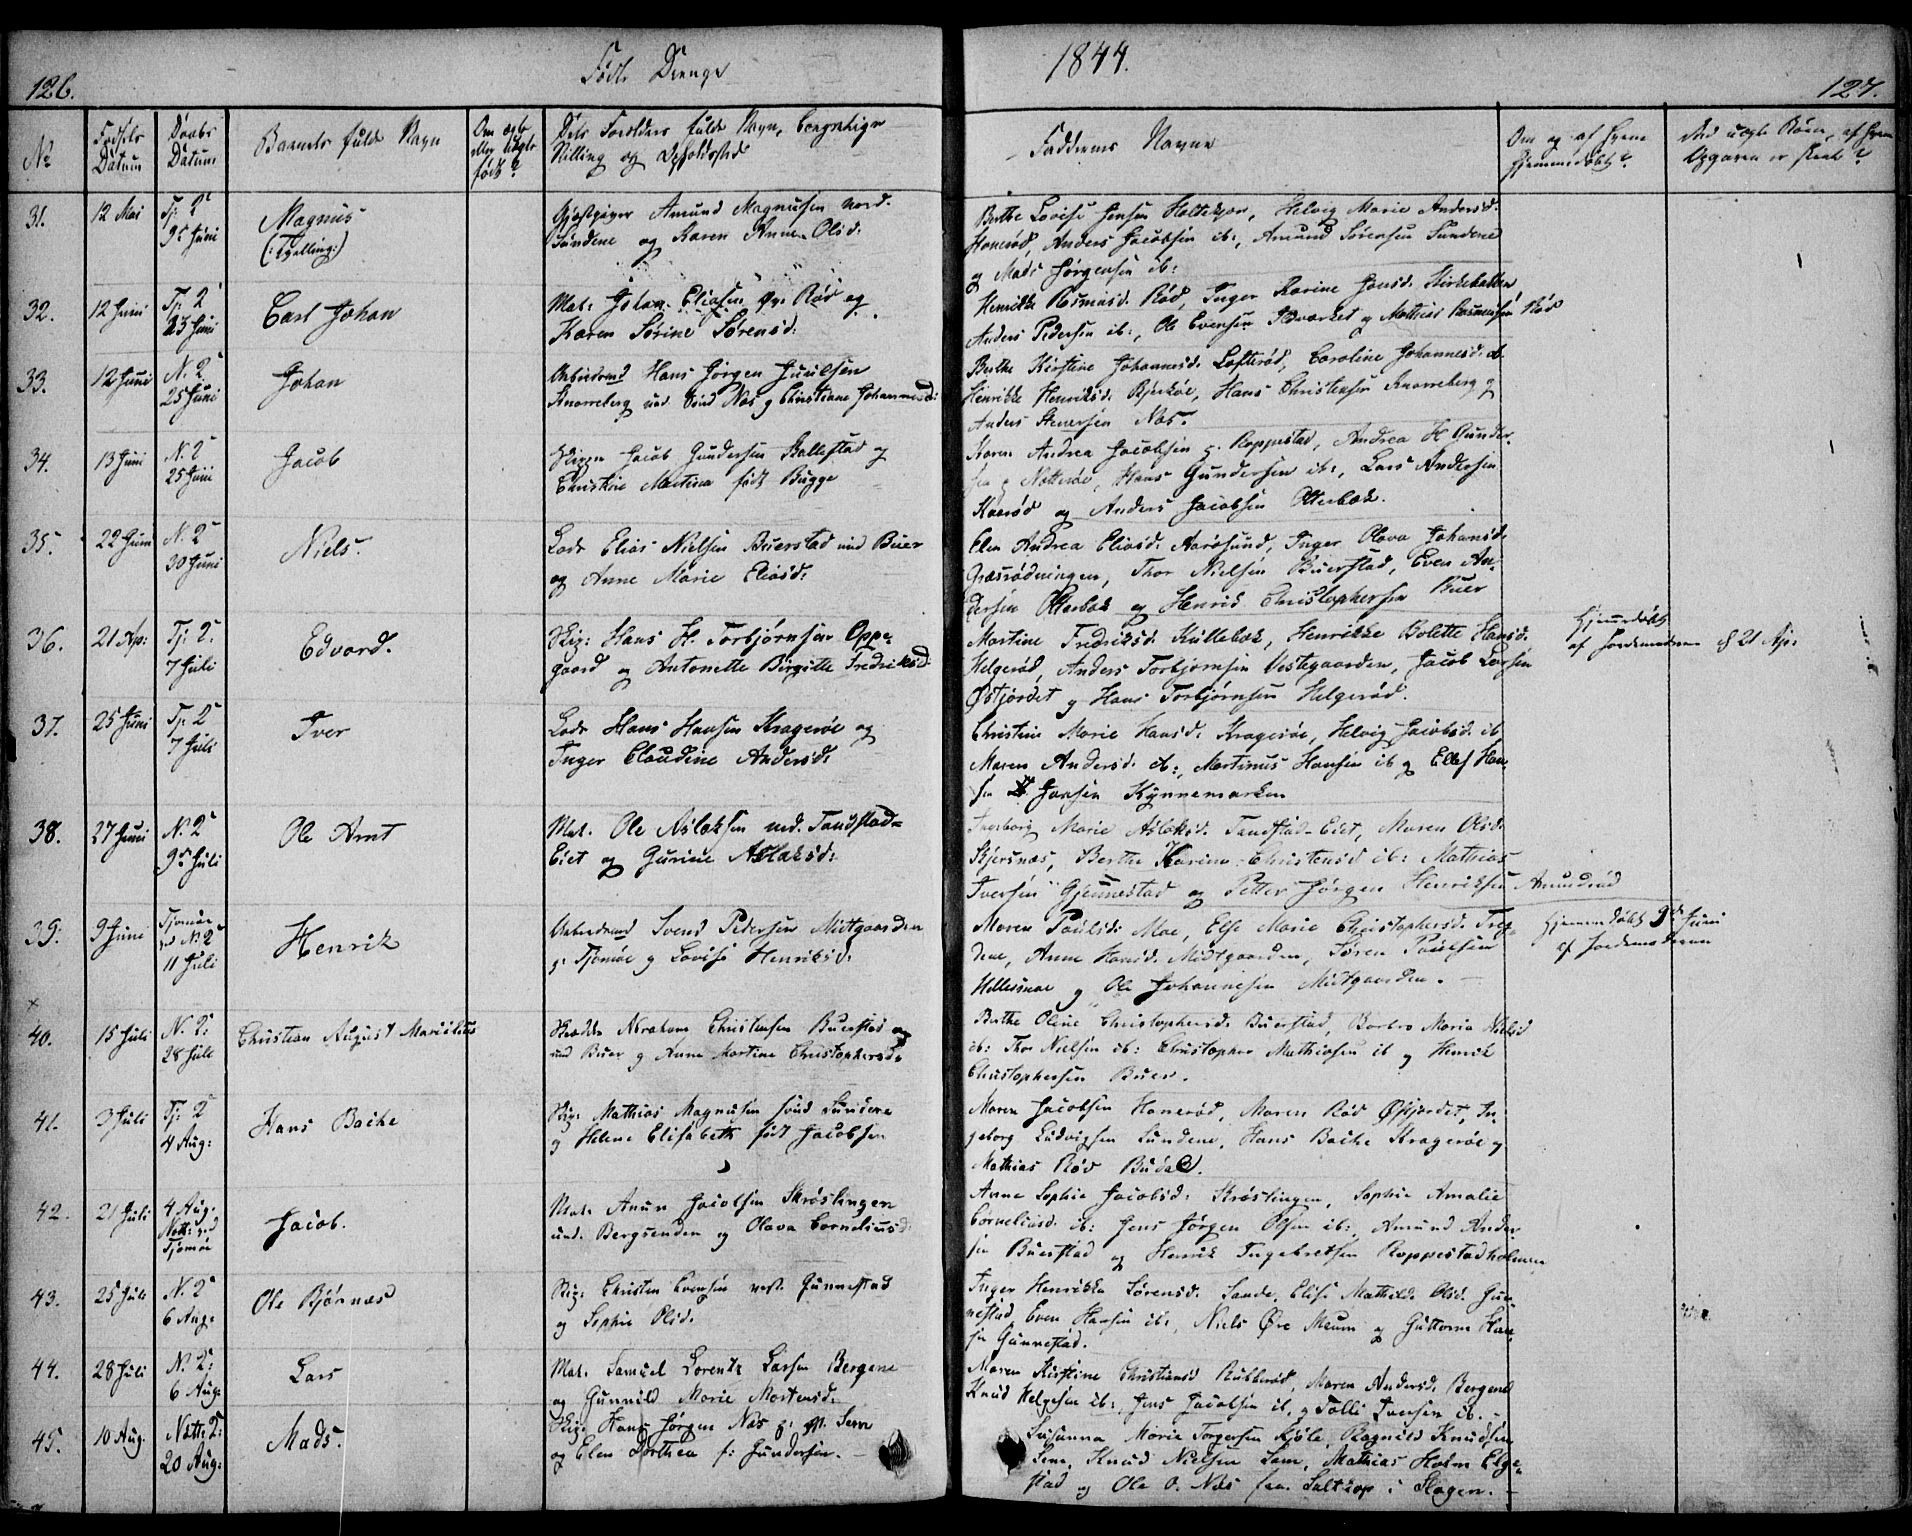 126.
Fødte Drenge
1844.
127.
No
Fødsels Datum
Daabs Datum
Barnets fulde Navn
Om ægte eller uægte født?
Dets Forældres fulde Navn, borgerlige
Stilling og Opholdssted
Faddernes Navne
Om og af hvem hjemmedøbt?
Ved uægte Børn, af hvem Opgaven er skeet?
31.
12 Mai
Tj: 2
9de Juni
Magnus
(: Tvelling:)
Gjæstgiver Amund Magnusen nord.
Sundene og Karen Anne Olsd:
Berthe Lovise Jensen Holtekjær, Helvig Marie Andersd.
Honerød, Anders Jacobsen ib:, Amund Sørensen Sundene
og Mads Jørgensen ib:
32.
12 Juni
Tj: 2
23 Juni
Carl Johan
Mat: Johan Eliasen Rød og
Karen Sørine Sørensd.
Henrikke Rasmusd. Rød, Inger Karine Hansd. Kirkebakken
Anders Pedersen ib:, Ole Evensen og Mathias Rasmusen Rød
33.
12 Juni
N. 2
25 Juni
Johan
Arbeidsmd Hans Jørgen Juulsen
Knorreberg und. Næs og Christiane Johannesd:
Berthe Kirstine Johannesd. Lofterød, Caroline Johannesd. ib.
Henrikke Henriksd. Bjerkøe, Hans Christensen Knorreberg og
Anders Næs.
34.
13 Juni
N. 2
25 Juni
Jacob
Skipper Jacob Gundersen Ballestad og
Christine Martina født Bugge
Karen Andrea Jacobsen g. Roppestad, Andrea H Gunder-
sen g Nøtterøe, Hans Gundersen ib:, Lars Andersen
Kaarød og Anders Jacobsen Otterbæk.
35.
22 Juni
N. 2
30 Juni
Niels.
Lods Elias Nielsen Buerstad und Buer
og Anne Marie Eliasd:
Elen Andrea Eliasd. Aarøsund, Inger Olava Johansd.
Græsrødningen, Thor Nielsen Buerstad, Even An-
dersen Otterbæk og Henrik Christophersen Buer
36.
21 Ap:
Tj: 2.
7 Juli
Edvard.
Skip: Hans H. Torbjørnsen Oppe-
gaard og Antonette Birgitte Fredriksd.
Martine Fredriksd. Kullebæk, Henrikke Bolette Hansd.
Helgerød, Anders Torbjørnsen Vestegaarden, Jacob Larsen
Østjordet og Hans Torbjørnsen Helgerød.
Hjemmedøbt
af Jordemoderen d 21 Ap:
37.
25 Juni
Tj: 2
7 Juli
Iver
Lods Hans Hansen Kragerøe og
Inger Claudine Andersd:
Christine Marie Hansd. Kragerøe, Helvig Jacobsd. ib.
Maren Andersd. ib:, Martinus Hansen ib og Ellef Han-
sen Jansen Kynnemarken
38.
27 Juni
N. 2
9de Juli
Ole Arnt
Mat. Ole Aslaksen ved. Tandstad-
Eiet og Gurine Aslaksd:
Ingeborg Marie Aslaksd. Tandstad-Eiet, Maren Olsd.
Skjersnæs, Berthe Karine Christensd ib: Mathias
Iversen Gjennestad og Petter Jørgen Henriksen Amundrød
39.
9 Juni
Tjømøe N. 2
11 Juli
Henrik
Arbeidsmd Svend Pedersen Midtgaarden
g: Tjømøe og Lovise Henriksd:
Maren Paulsd. Moe, Else Marie Christophersd.
dene, Anne Hansd. Midtgaarden, Søren Paulsen
Hellesmoe og Ole Johannesen Midtgaarden.
Hjemmedøbt 9de Juni
af Jordemoderen
40.
15 Juli
N. 2.
28 Juli
Christian August Marcilius
Skrædder Abraham Christensen Buerstad
und Buer og Anne Martine Christophersd.
Berthe Oline Christophersd. Buerstad, Barbro Maria Nielsd
ib: Thor Nielsen ib: Christopher Mathiasen ib og Henrik
Christophersen Buer.
41.
3 Juli
Tj: 2
4 Aug:
Hans Bache
Skip: Mathias Magnusen Sundene
og Helene Elisabeth født Jacobsen
Maren Jacobsen Honerød, Maren Rød Østjordet, In-
geborg Ludvigsen Sundene, Hans Bache Kragerøe og
Mathias Rød Budal.
42.
21 Juli
4 Aug.
Nøtt:
Tjømøe
Jacob.
Mat. Anun Jacobsen Skrøslingen
und. Bergsenden og Olava Corneliusd:
Anne Sophie Jacobsd: Skrøslingen, Sophie Amalie
Corneliusd. ib: Jens Jørgen Olsen ib:, Amund Ander-
sen Buerstad og Henrik Ingebretsen Roppestadholmen
43.
25 Juli
N. 2
6 Aug:
Ole Bjørnæs
Skip: Christen Evensen vest. Gunnestad
og Sophie Olsd.
Inger Henrikke Sørensd. Sande, Elise Mathilde Olsd. Gun-
nestad, Even Hansen ib:, Niels Øre Meum og Guttorm Han-
sen Gunnestad.
44.
28 Juli
N. 2:
6 Aug:
Lars
Mat. Samuel Lorentz Larsen Bergene
og Gunnild Marie Mortensd.
Maren Kirstine Christiansd Rubberød, Maren Andersd. Bergene
Knud Helgesen ib:, Jens Jacobsen ib. og Tolli Iversen ib.
45.
10 Aug.
Nøtt: 2:
20 Aug:
Mads.
Skip: Hans Jørgen Næs Sem
og Elen Dorthea f: Gundersen.
Susanna Marie Torgersen Kjøle, Ragnild Knudsen
Sem, Knud Nielsen Sem, Mathias Holm Elge-
stad og Ole O. Næs fra Saltkop i Slagen.